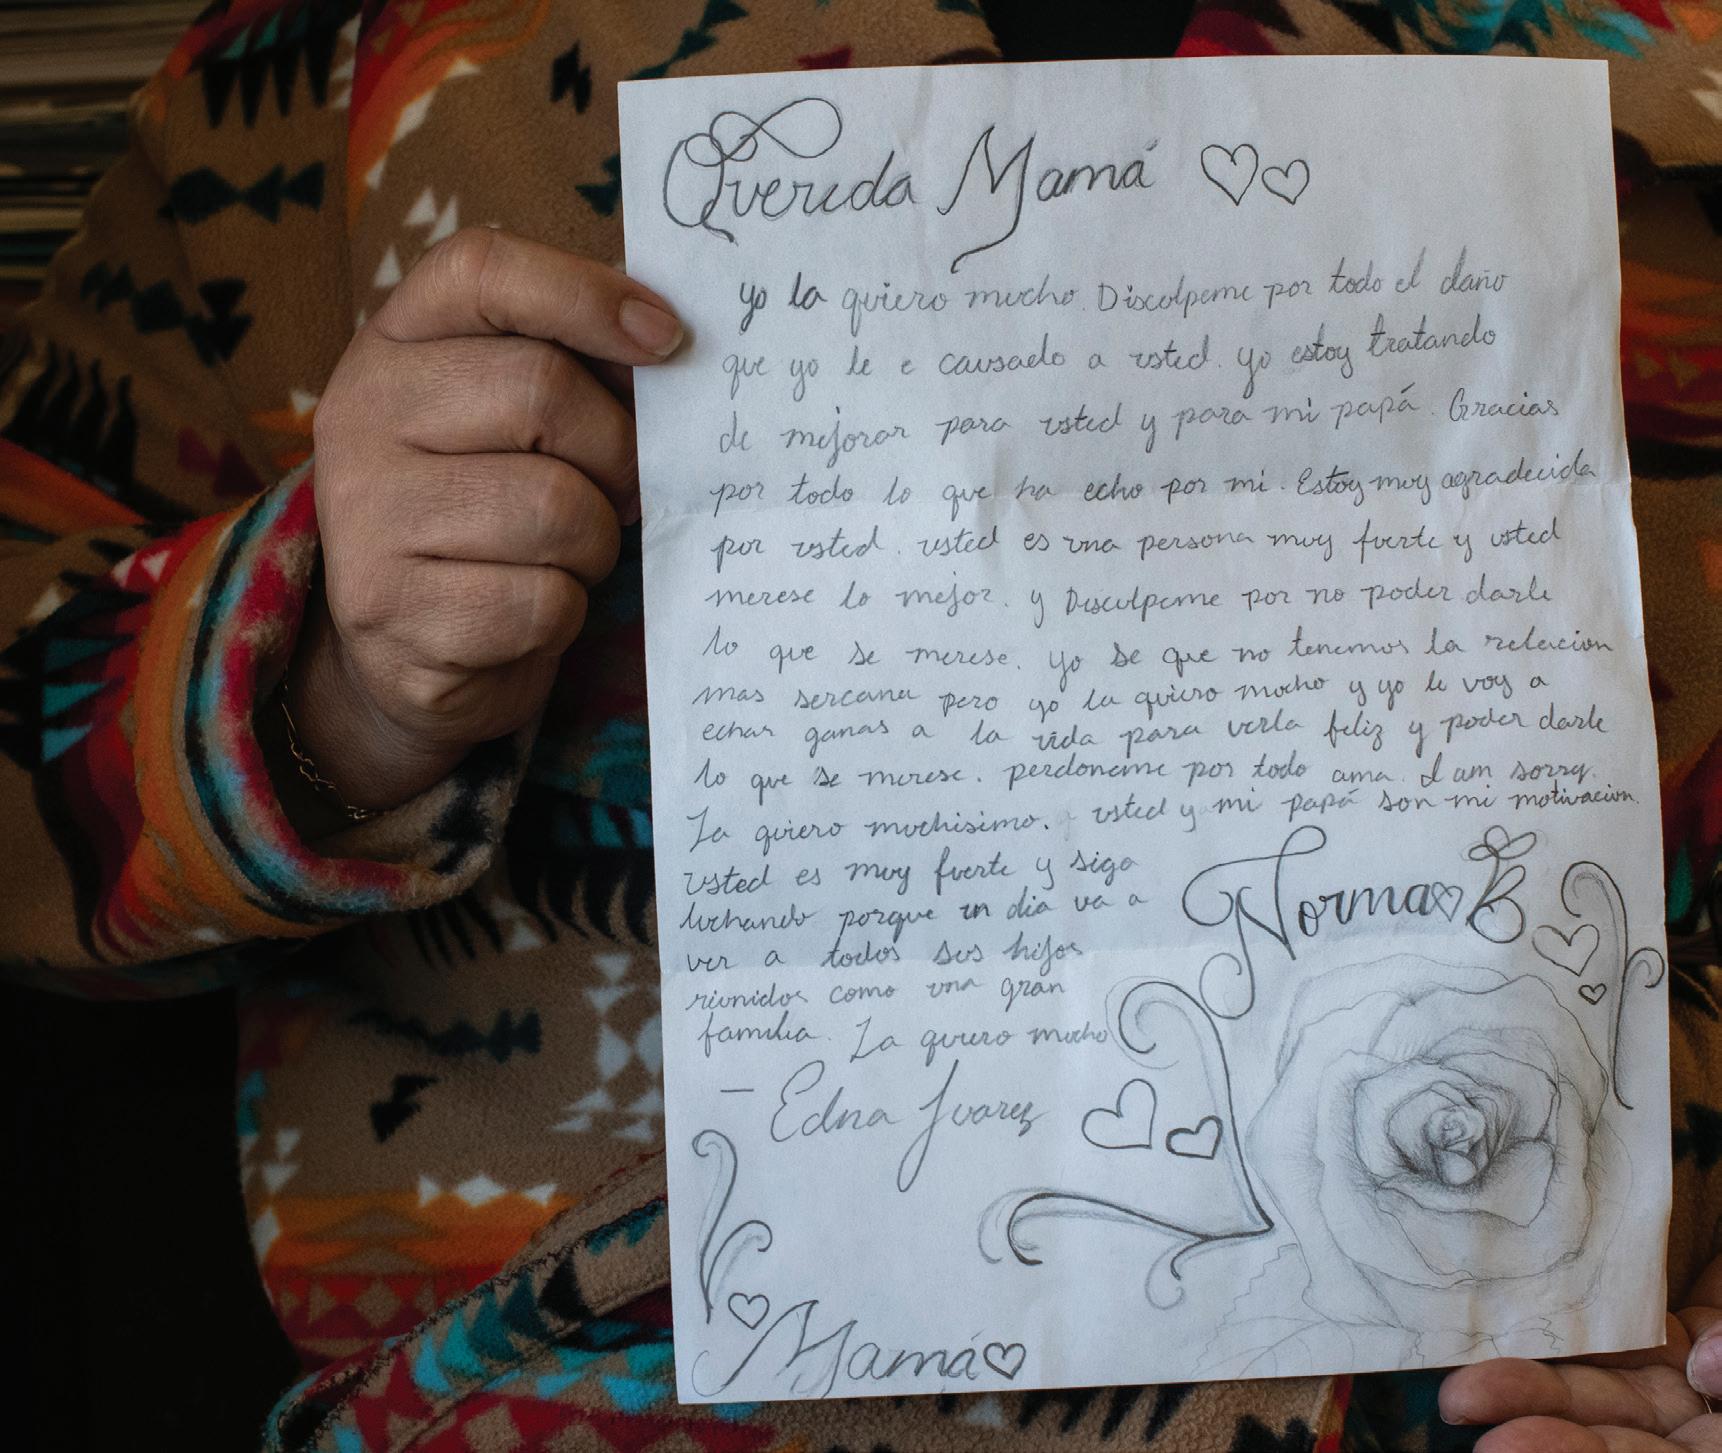 Querida Mamá
yo la quiero mucho. Disculpeme por todo el daño
que yo le e causado a usted. yo estoy tratando
de mejorar para usted y para mi papá. Gracias
por todo lo que ha echo por mi. Estoy muy agradecida
por usted. usted es una persona muy fuerte y usted
merese lo mejor. y Disculpeme por no poder darle
lo que se merese. yo se que no tenemos la relacion
mas sercana pero yo la quiero mucho y yo le voy a
echar ganas a la vida para verla feliz y poder darle
lo que se merese. perdoneme por todo ama. I am sorry.
La quiero muchisimo. usted y mi papá son mi motivacion.
usted es muy fuerte y siga
luchando porque un dia va a
ver a todos sus hijos
riunidos como una gran
familia. La quiero mucho
— Edna Juarez
Norma B
Mamá